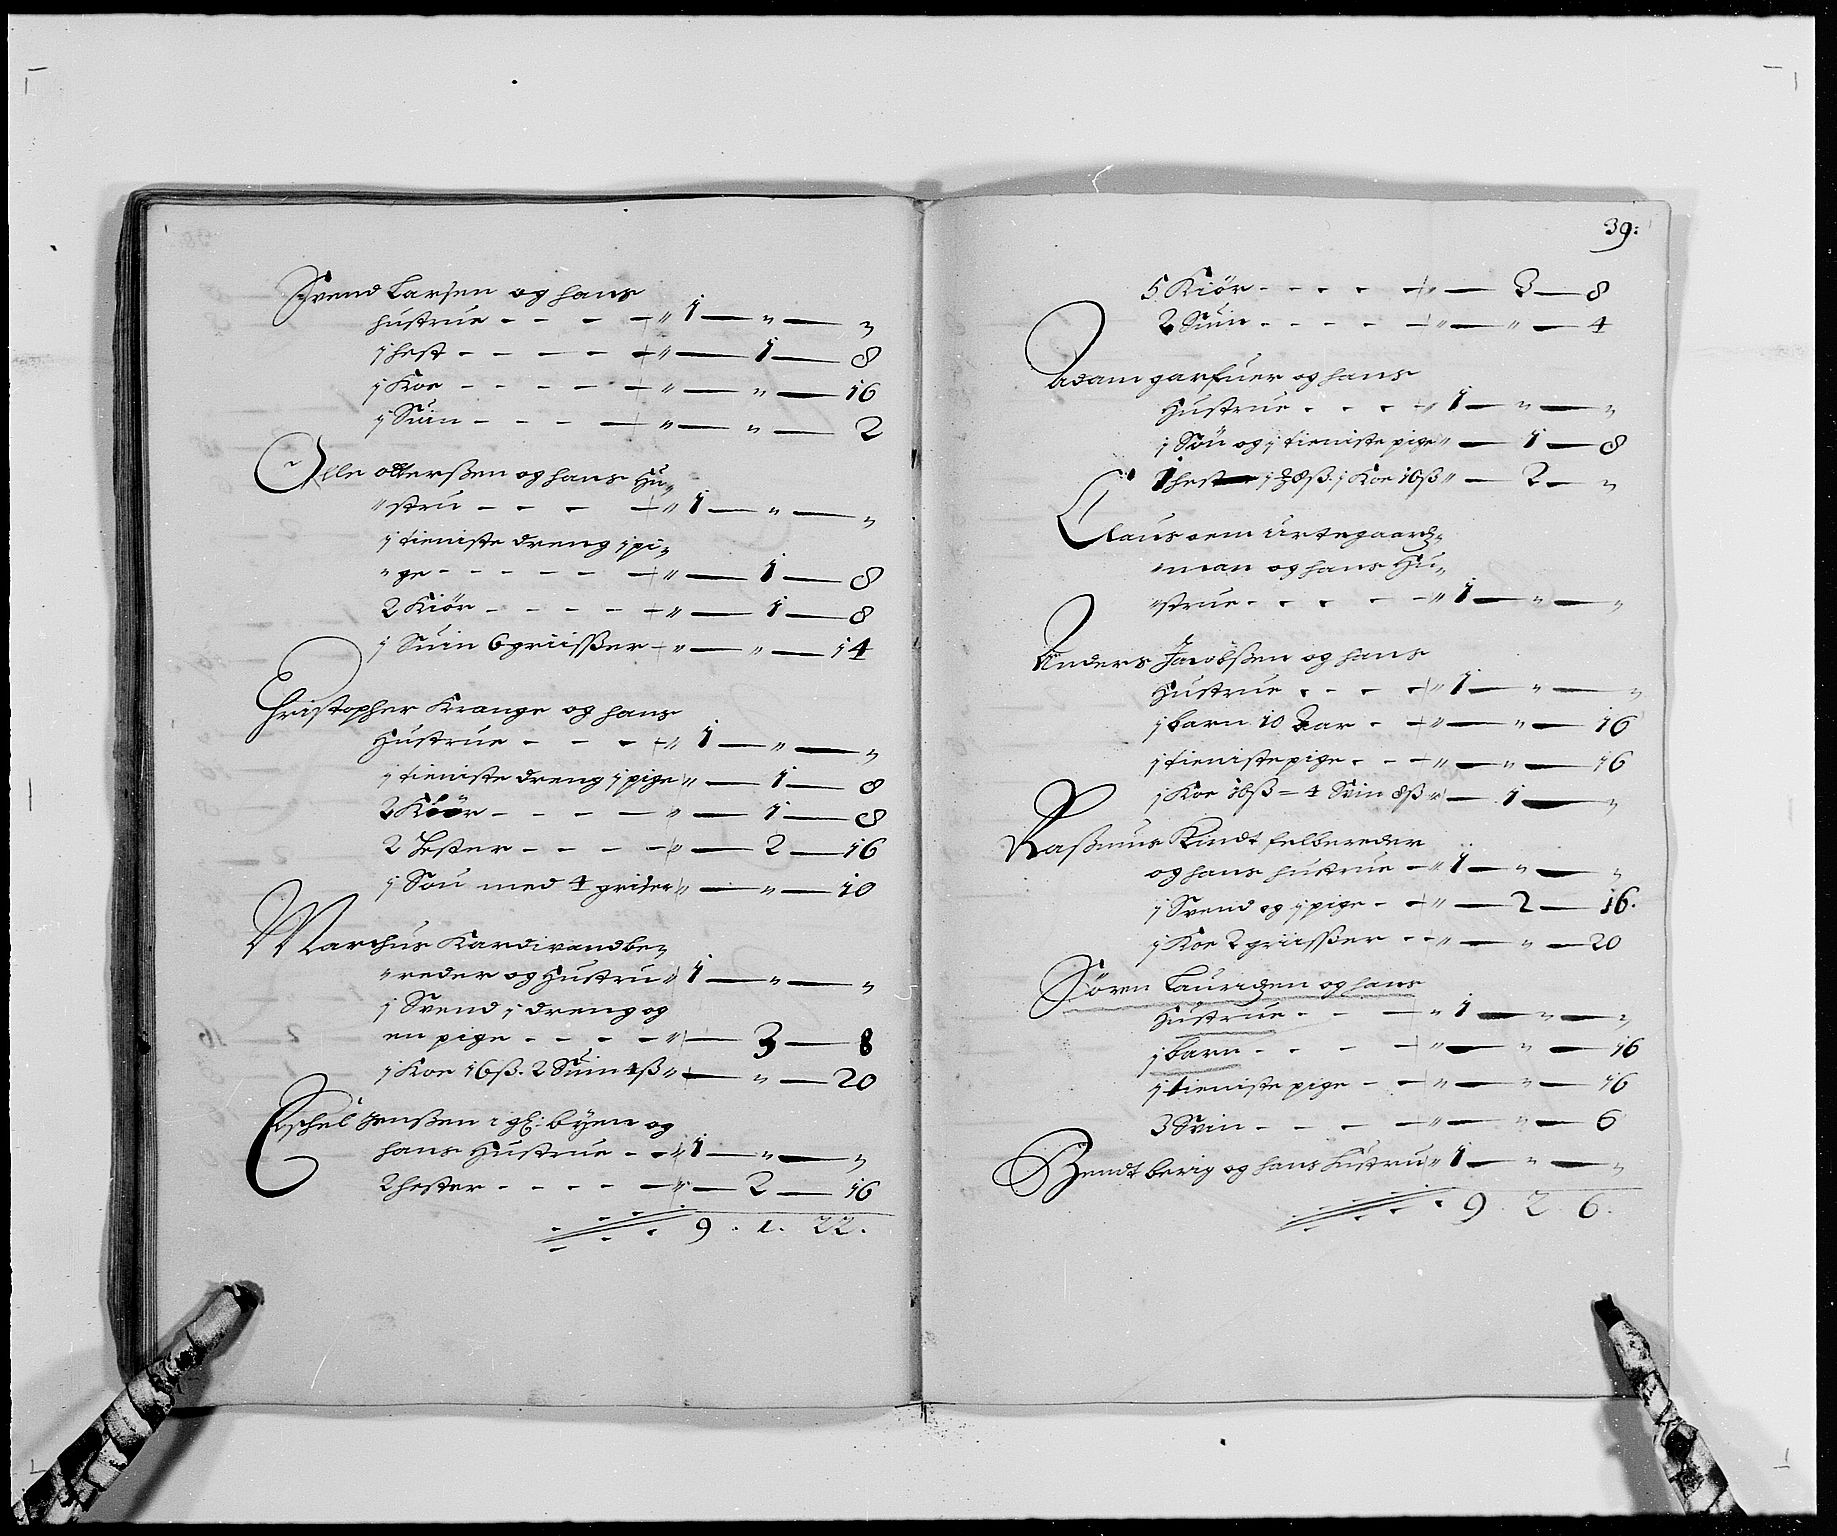 Svend Larsen og hans
hustrue - - - - " 1 — " — "
1 hest - - - - - " — 1 — 8
1 Koe - - - - - " — " — 16
1 Suin - - - - " — " — 2
Olle otterßen og hans Hu„
„stru - - - - " 1 — " — "
1 tieniste dreng 1 pi„
„ge - - - - - - " — 1 — 8
2 Kiör - - - - - " — 1 — 8
1 Suin 6 griisßer - " — " — 14
Christopher Krange og hans
Hustrue - - - - " 1 — " — "
1 tieniste dreng 1 pige " — 1 — 8
2 Kiör - - - - " — 1 — 8
2 Hester - - - - " — 2 — 16
1 Sou med 4 griser " — " — 10
Marchus Kardivandbe„
„reder og Hustru " 1 — " — "
1 Svend 1 dreng og
en pige - - - - " — 3 — 8
1 Koe 16ß. 2 Suin 4ß " — " — 20
Eschel Jenßen i gl: byen og
hans Hustrue - - " 1 — " — "
2 hester - - - - - " — 2 — 16
9 . 1 . 22 .
39:
5 Kiör - - - - - " — 3 — 8
2 Suin - - - - - " — " — 4
Adam garfuer og hans
Hustrue - - - - " 1 — " — "
1 Sön og 1 tieniste pige " — 1 — 8
1 hest 1 8ß. 1 Koe 16ß " — 2 — "
Claus urtegaardz„
„man og hans Hu„
„strue - - - - - " 1 — " — "
Anders Jacobßen og hans
Hustrue - - - - " 1 — " — "
1 barn 10 Aar - - " — " — 16
1 tienistepige - - - " — " — 16
1 Koe 16ß = 4 Svin 8ß " — 1 — "
Raßmus Kindt felbereder
og hans hustrue - " 1 — " — "
1 Svend og 1 pige - - " — 2 — 16.
1 Koe 2 griisßer - - " — " — 20
Sören Lauridzen og hans
Hustrue - - - " 1 — " — "
1 barn - - - - " — " — 16
1 tieniste pige - - " — " — 16
3 Svin - - - - " — " — 6
Bendt berig og hans Hustru " 1 — " — "
9 . 2 . 6 .